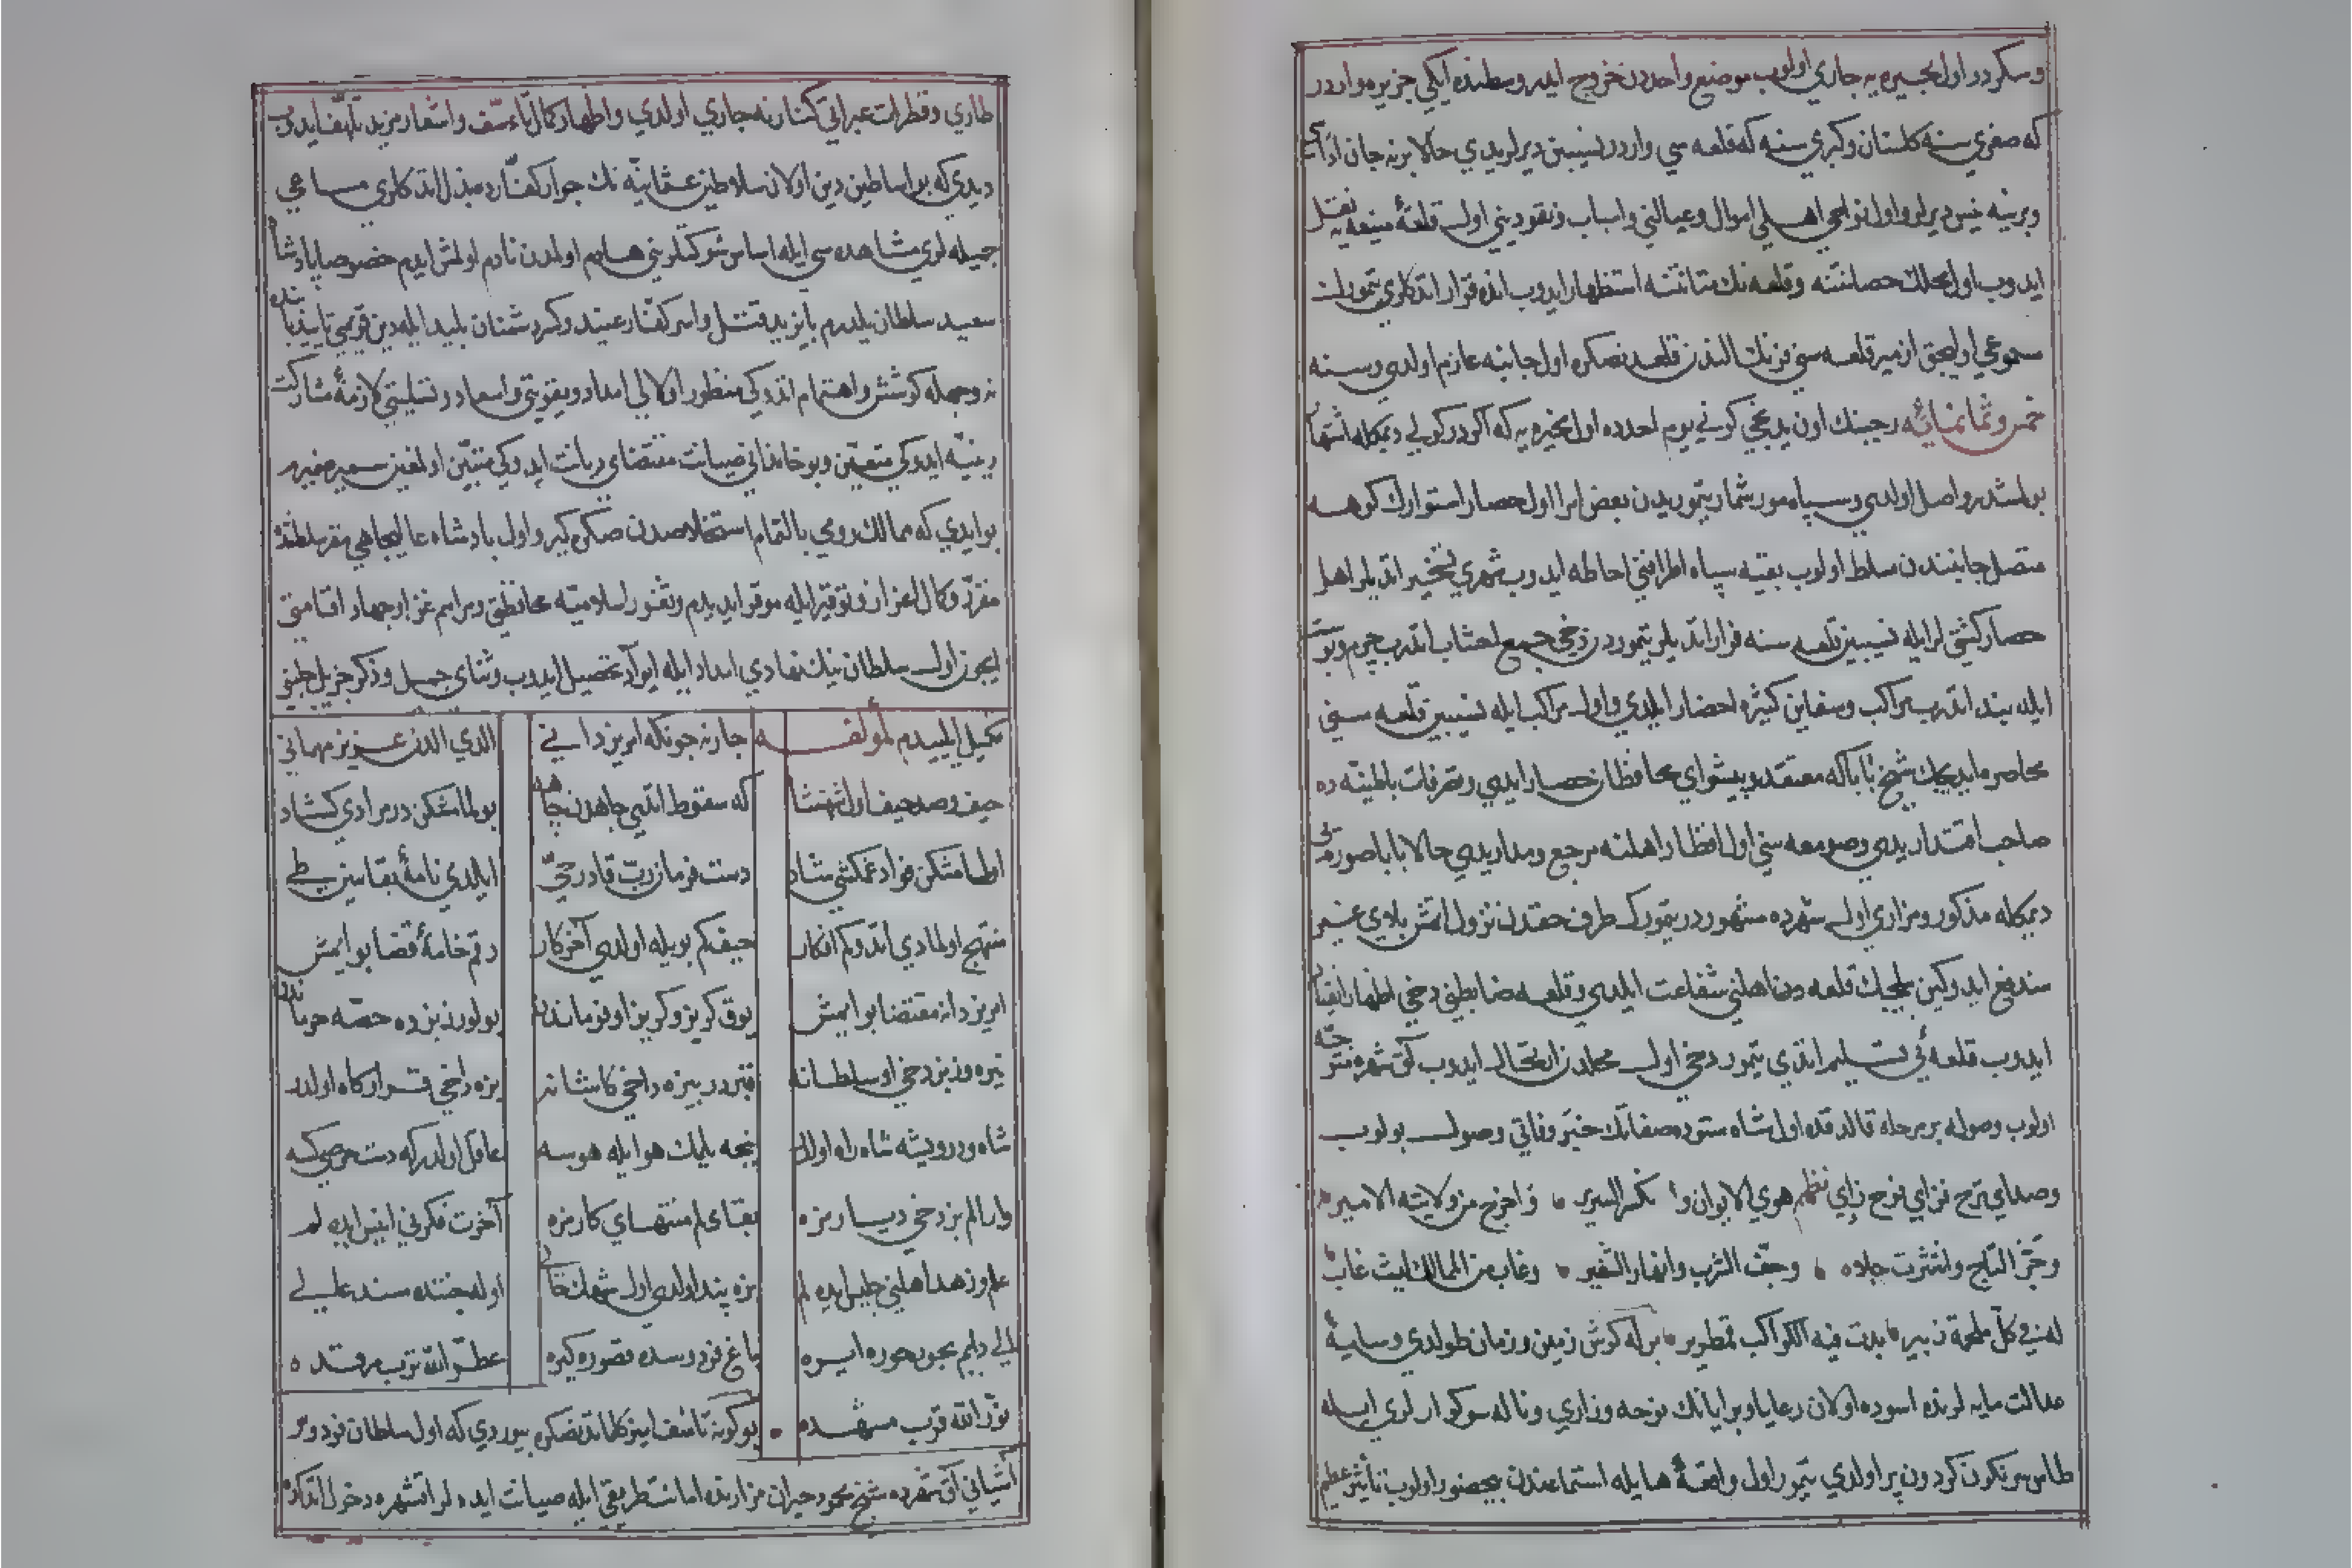 وسكردر اول بحيره يه جاري اولوب موضع واحددن خروج ايدر وسطنده ايكي جزيره وار در
كه صغري سنه كلستان وكبري سنه كه قلعه سي واردر نسيبين ديرلر ايدي حالا برنه جان اداسي
وبرينه نيس ديرلر واول نواحي اهلي اموال وعيالني واسباب ونقوديني اول قلعهٔ منيعه يه نقل
ايدوب اول محلك حصانتنه وقلعه نك متانتنه استظهار ايدوب انده قرار اتدكلري تيمورك
مسموعي اوليجق ازمير قلعه سني فرنك الندن قلعدنصكره اول جانبه عازم اولدي وسنه
خمس وثمانمائه رجبنك اون يدنجي كوني يوم احدده اول بحيره يه كه اكردر كولي ديمكله اشتهار
بولمشدر واصل اولدي وسپاه مور شمار تيموريدن بعض امرا اول حصار استوارك كوهه
متصل جانبندن مسلط اولوب بقيه سپاه اطرافني احاطه ايدوب شهري تسخير اتديلر اهل
حصار كشتي لر ايله نسيبين قلعه سنه فرار اتديلر تيمور دخي جمع احشاب اتدرب چرم وپوست
ايله بند اتدرب مراكب وسفاين كثيره احضار ايلدي واول مراكب ايله نسيبين قلعه سني
محاصره ايديجك شيخ بابا كه معتقد وپيشواي محافظان حصار ايدي وتصرفات باطنيه ده
صاحب اقتدار يدي وصومعه سي اول اقطار اهلنه مرجع ومدار يدي حالا بابا صورتي
ديمكله مذكور ومزاري اول شهرده مشهور در تيمورك طرف حقدن نزول اتمش بلاي عسير
سندفع ايدوكين بلجك قلعه دن اهلني شفاعت ايلدي وقلعه ضابطي دخي اظهار انقياد
ايدوب قلعه ئي تسليم اتدي تيمور دخي اول محلدن ارتحال ايدوب آق شهره متوجه
اولوب وصوله بر مرحله قالدقده اول شاه ستوده صفاتك خبر وفاتي وصول بولوب
وصداي ترح فزاي فرح زداي نظم هوي الايوان وانكسر السرير ؞ واخرج من ولايته الامير ؞
وخر التاج وانتثرت حلاه ؞ وجف الشرب وانهار الشفير ؞ وغاب من الممالك ليث غاب ؞
له في كل ملحمة زبير ؞ بدت فيه الكواكب قمطرير ؞ برله كوش زمين وزمان طولدي وسايهٔ
عدالت مايه لرنده اسوده اولان رعايا وبرايانك نوحه وزاري وناله سوكوارلري ايله
طاس سرنكون كردون پر اولدي تيمور اول واقعهٔ هايله استماعندن بيحضور اولوب تأثير عظيم
طاري وقطرات عبراتي كنارنه جاري اولدي واظهار كمال تأسف واشعار مزيد تلهف ايدوب
ديدي كه بو اساطين دين اولان سلاطين عثمانيه نك جوار كفارده بذل اتدكلري مساعي
جميله لري مشاهده سي ايله اساس شوكتلريني هادم اولمدن نادم اولمش ايدم خصوصا پادشاه
سعيد سلطان يلدرم بايزيد قتل واسر كفار عنيد وكبر دشمنان پليد ايله دين قويمي تاييد بابنده
نه وجهله كوشش واهتمام اتدوكي منظور اولالي امداد وتقويتي واسعاد وتسليتي لازمهٔ مشاركت
دينيه ايدوكي متعين وبو خانداني صيانت مقتضاي ديانت ايدوكي متبين اولمغين سمير ضميرم
بو ايدي كه ممالك رومي بالتمام استخلاصدن صكره كيرو اول پادشاه عاليجاهي مقر سلطنتنده
مقرر وكمال اعزاز وتوقير ايله موقر ايديدم وثغور اسلاميه محافظتي ومراسم غزا وجهاد اقامتي
ايچون اول سلطان نيك نهادي امداد ايله ايراد تحصيل ايدوب وثناي جميل وذكر جزيل جلبني
تكميل ايليدم لمؤلفه چاره نه چونكه امر يزداني الدي الدن عزيز مهماني
حيف وصد حيف اول شهنشاه كه سقوط اتدي جاهدن چاهه بولمامشكن در مرادي كشاد
اولمامشكن فواد غمكشي شاد دست فرمان رب قادر حي ايلدي نامهٔ بقاسن طي
منتج اولمادي اتدوكم افكار حيف كم بويله اولدي آخر كار رقم خامهٔ قضا بو ايمش
امر يزدانه مقتضا بو ايمش يوق كريز وكريز اوفرماندن بولورز بزده حصه حرماندن
نيره وز بز دخي او سلطانه قنيدر بيزه داخي كاشانه بزه داخي قراركاه اولدر
شاه ودرويشه شاه راه اولدر پنجه يلمك هوا ايله هوسه عاقل اولدر كه دست حرصي كسه
وارالم بز دخي ديارمزه بقاي لم منتهاي كارمزه آخرت فكرني انيس ايده لم
علم وزهد اهلني جليس ايده لم بزه پند اولدي اول شهك حالي اوله جنتده مسند عالي
الي دايم بچون حوره ايره باغ فردوسده قصوره كيره عطر الله ترب مرقده ؞
نور الله قرب مشهده ؞ بو كونه تأسف آميز كلماتدنصكره بيوردي كه اول سلطان فردوس
آشياني آق شهرده شيخ محمود حيران مزارنده امانت طريقي ايله صيانت ايده لر اقشهره دخول اتدكده